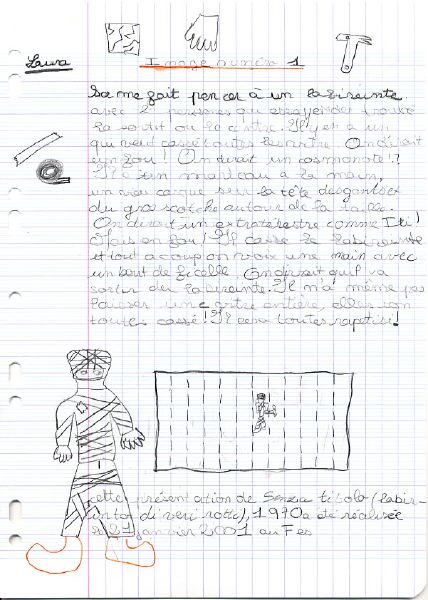 Laura
Image numéro 1
Sa me fait penser à un labireinte
avec 2 personnes qui essayent de trouvé
la sortit ou le centre. Il y en a un
qui veut cassé toutes les vitre. On dirait
un fou! On dirait un cosmonote!?
Il a son marteau à la main,
un vieu casque sur la tête des gants et
du gros scotche autour de la taille.
On dirait un extraterestre comme Iti!
Mais en fou! Il casse le labireinte
et tout à coup on voix une main avec
un bout de ficelle. On dirait qu'il va
sortir du labireinte. Il n'a même pas
laisser une vitre entière, elles son
toutes cassé! Il cera toutes rapetisi!
cette présentation de Senza titolo (labir-
into di veri rotti), 1970 a été réalisée
le 21 janvier 2001 au Fes